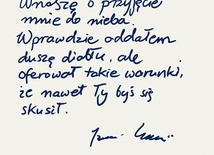 Wnoszę o przyjęcie
mnie do nieba.
Wprawdzie oddałem
duszę diabłu, ale
oferował takie warunki,
że nawet Ty byś się
skusił.